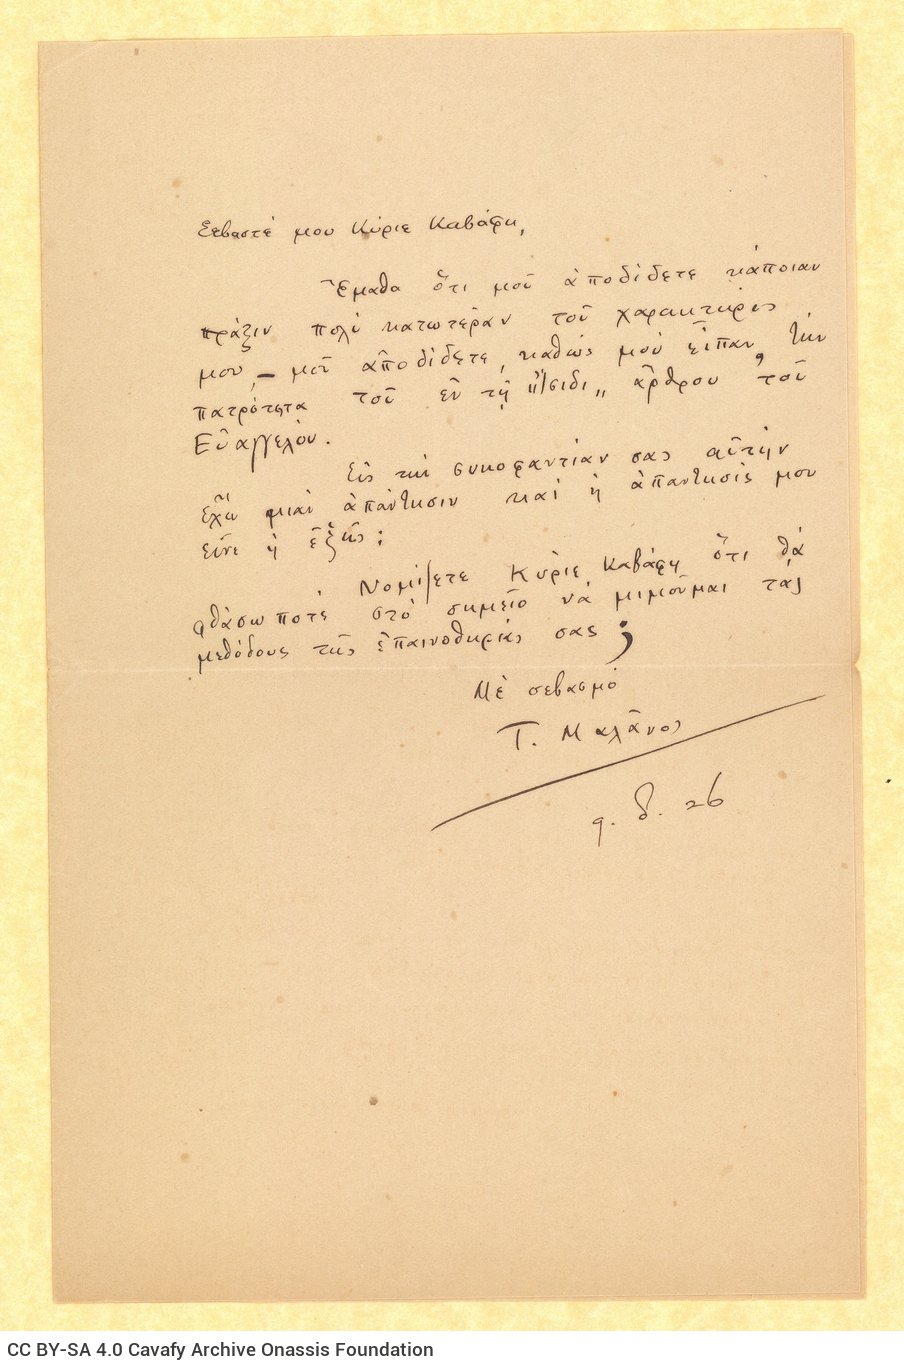 Σεβαστέ μου Κύριε Καβάφη,
Ἔμαθα ὅτι μοῦ ἀποδίδετε κάποιαν
πρᾶξιν πολὺ κατωτέραν τοῦ χαρακτῆρός
μου, — μοῦ ἀποδίδετε, καθὼς μοῦ εἶπαν, τὴν
πατρότητα τοῦ ἐν τῇ "Ἴσιδι" ἄρθρου τοῦ
Εὐαγγέλου.
Εἰς τὴν συκοφαντίαν σας αὐτὴν
ἔχω μιὰν ἀπάντησιν καὶ ἡ ἀπάντησίς μου
εἶνε ἡ ἑξῆς:
Νομίζετε Κύριε Καβάφη ὅτι θὰ
φθάσω ποτὲ στὸ σημεῖο νὰ μιμοῦμαι τὰς
μεθόδους τῆς ἐπαινοθηρίας σας;
Μὲ σεβασμὸ
Τ. Μαλάνος
9. 8. 26
CC BY-SA 4.0 Cavafy Archive Onassis Foundation